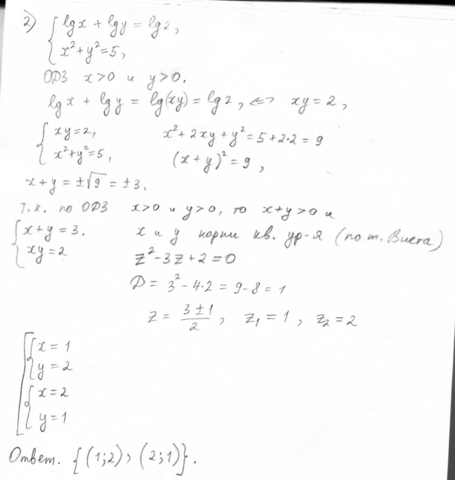 2) { lg x + lg y = lg 2,
x² + y² = 5,
ОДЗ x>0 и y>0.
lg x + lg y = lg(xy) = lg 2, <=> xy = 2,
{ xy = 2, x² + 2xy + y² = 5 + 2·2 = 9
x² + y² = 5, (x + y)² = 9,
x + y = ±√9 = ±3.
Т.к. по ОДЗ x>0 и y>0, то x+y>0 и
{ x + y = 3. x и y корни кв. ур-я (по т. Виета)
xy = 2 z² - 3z + 2 = 0
D = 3² - 4·2 = 9 - 8 = 1
z = (3 ± 1)/2, z₁ = 1, z₂ = 2
[ { x = 1
y = 2
{ x = 2
y = 1
Ответ. {(1;2), (2;1)}.